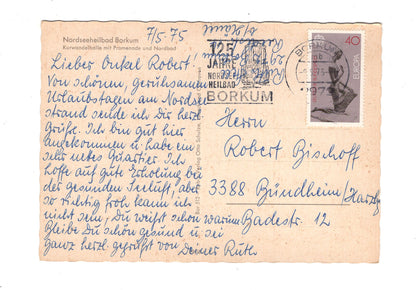 Nordseeheilbad Borkum
Kurwandelhalle mit Promenade und Nordbad
7/5. 75
Lieber Onkel Robert!
Von schönen, geruhsamen
Urlaubstagen am Nordsee
strand sende ich Dir herzl.
Grüße. Ich bin gut hier
angekommen u. habe ein
sehr nettes Quartier. Ich
hoffe auf gute Erholung bei
der gesunden Seeluft, aber
so richtig froh kann ich
nicht sein, Du weißt schon warum.
Bleibe Du schön gesund u. sei
ganz herzl. gegrüßt von Deiner Ruth
125
JAHRE
HEILBAD
BORKUM
BORKUM
40
EUROPA
Herrn
Robert Bischoff
3388 Bündheim/Harzb.
Badestr. 12